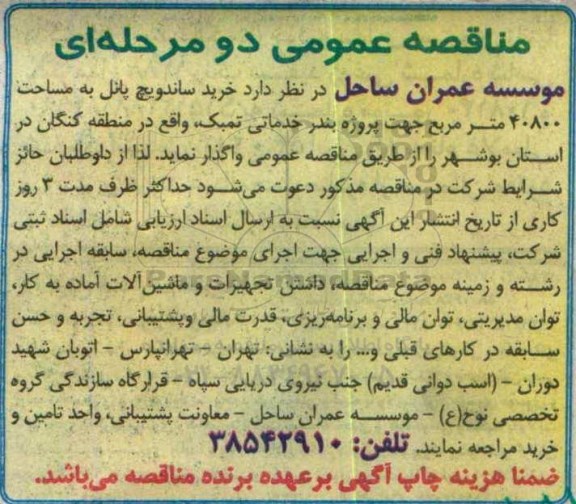 مناقصه عمومی دو مرحله‌ای
موسسه عمران ساحل در نظر دارد خرید ساندویچ پانل به مساحت
۴۰۸۰۰ متر مربع جهت پروژه بندر خدماتی تمبک، واقع در منطقه کنگان در
استان بوشهر را از طریق مناقصه عمومی واگذار نماید. لذا از داوطلبان حائز
شرایط شرکت در مناقصه مذکور دعوت می‌شود حداکثر ظرف مدت ۳ روز
کاری از تاریخ انتشار این آگهی نسبت به ارسال اسناد ارزیابی شامل اسناد ثبتی
شرکت، پیشنهاد فنی و اجرایی جهت اجرای موضوع مناقصه، سابقه اجرایی در
رشته و زمینه موضوع مناقصه، داشتن تجهیزات و ماشین‌آلات آماده به کار،
توان مدیریتی، توان مالی و برنامه‌ریزی، قدرت مالی وپشتیبانی، تجربه و حسن
سابقه در کارهای قبلی و... را به نشانی: تهران - تهرانپارس - اتوبان شهید
دوران - (اسب دوانی قدیم) جنب نیروی دریایی سپاه - قرارگاه سازندگی گروه
تخصصی نوح(ع) - موسسه عمران ساحل - معاونت پشتیبانی، واحد تامین و
خرید مراجعه نمایند. تلفن: ۳۸۵۴۲۹۱۰
ضمنا هزینه چاپ آگهی برعهده برنده مناقصه می‌باشد.